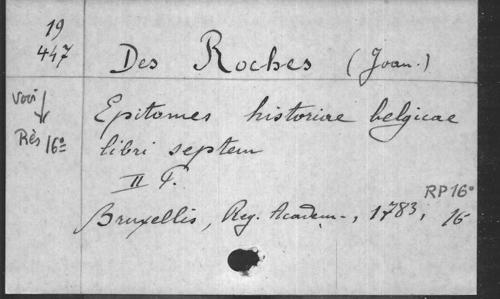 19
447
Des Roches (Joan.)
Voir
Rés 16º
Epitomes historiae belgicae
libri septem
II T.
RP 16º
Bruxellis, Reg. Academ., 1783, 16